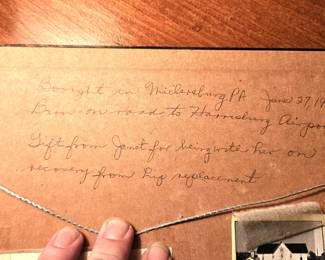 Bought in Millersburg PA June 27, 19
Barn on road to Harrisburg Airpor
Gift from Janet for being with her on
recovery from hip replacement